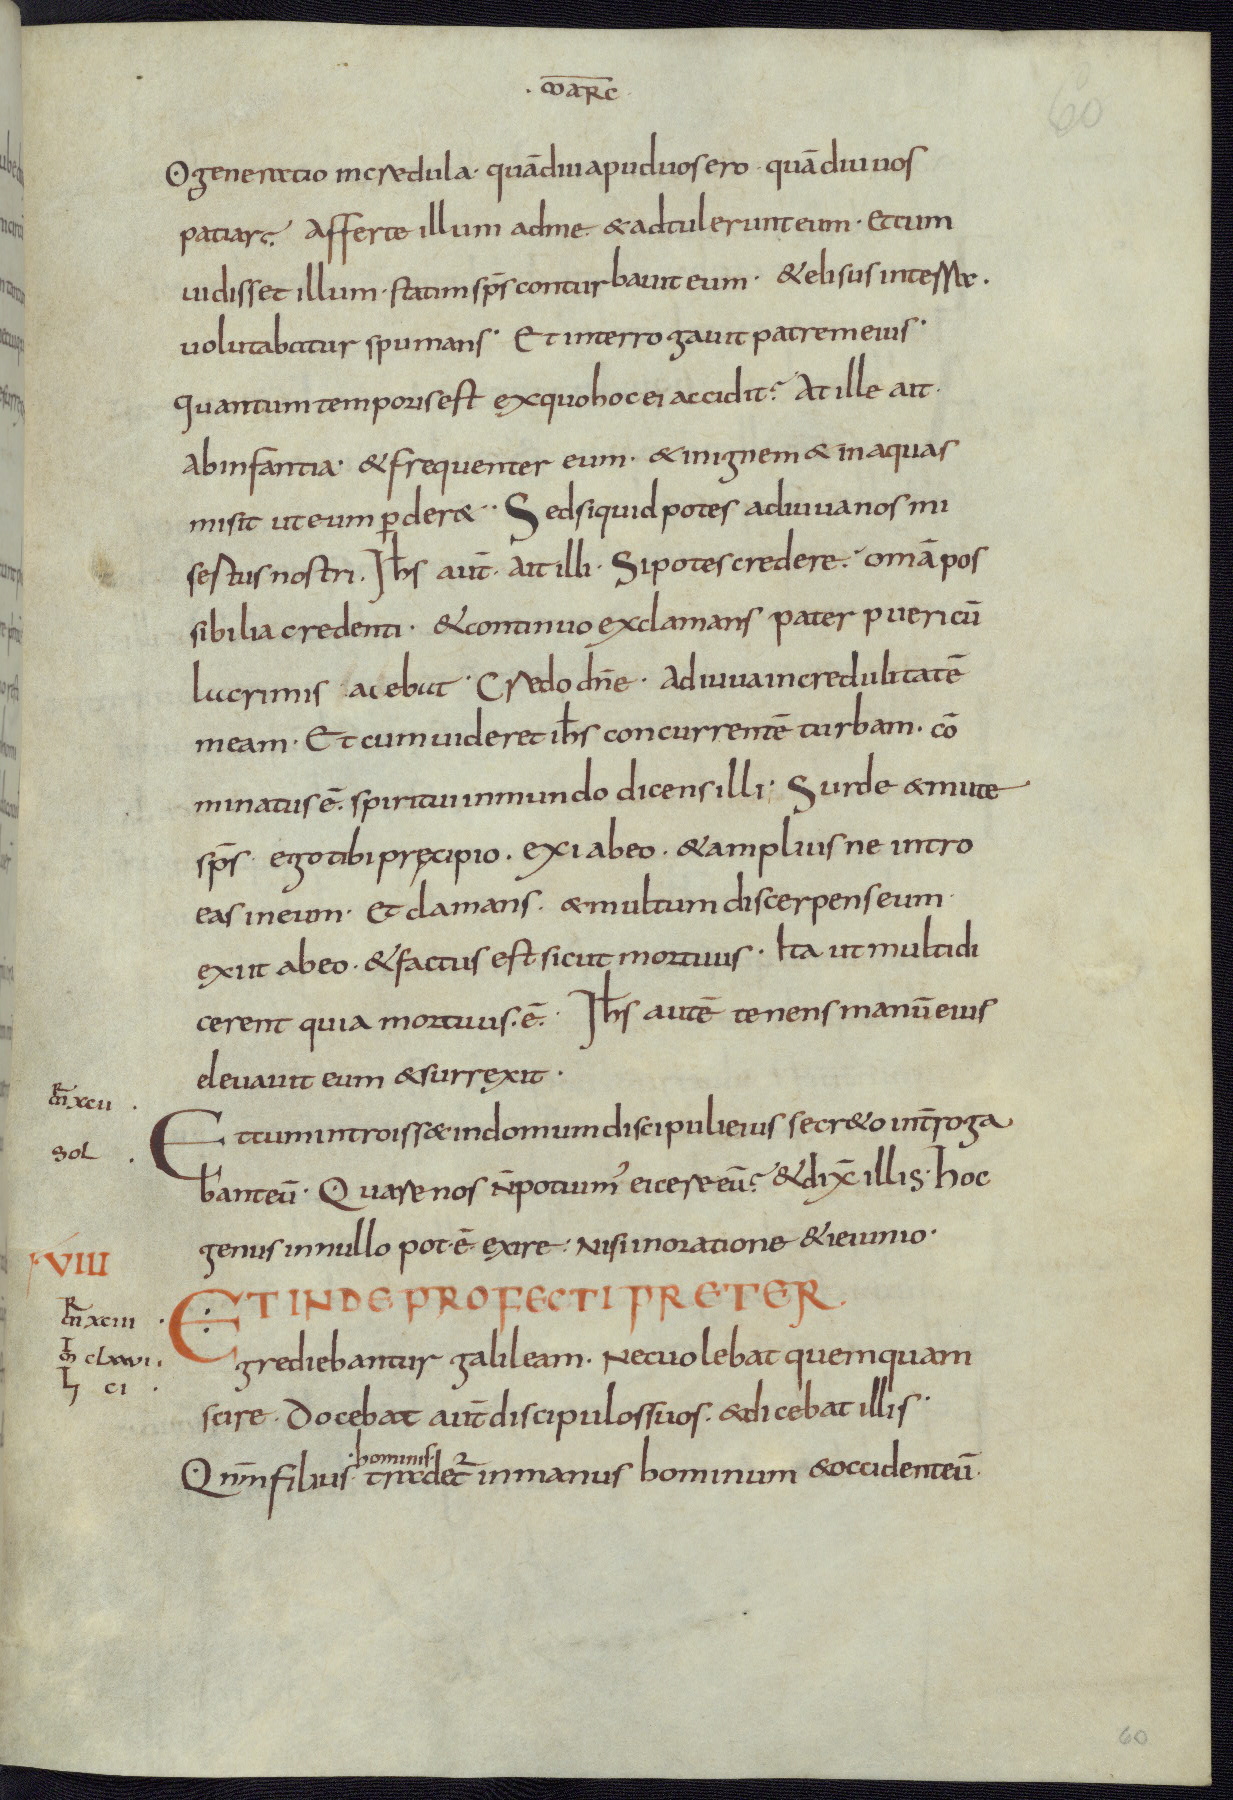 · MARC
60
O generatio incredula · quādiu apud uos ero · quādiu uos
patiar? Afferte illum ad me · & adtulerunt eum · Et cum
uidisset illum · statim sp̄s conturbauit eum · & elisus in terra ·
uolutabatur spumans · Et interrogauit patrem eius ·
quantum temporis est ex quo hoc ei accidit? At ille ait ·
ab infantia · & frequenter eum · & in ignem & in aquas
misit ut eum ꝑder& · Sed si quid potes adiuua nos mi
sertus nostri · Ih̄s aut̄ · ait illi · Si potes credere · omīa pos
sibilia credenti · & continuo exclamans pater pueri cū
lacrimis aiebat · Credo dn̄e · adiuua incredulitatē
meam · Et cum uideret ih̄s concurrentē turbam · cō
minatus ē · spiritui inmundo dicens illi · Surde & mute
sp̄s · ego tibi pręcipio · exi ab eo · & amplius ne intro
eas in eum · Et clamans · & multum discerpens eum ·
exiit ab eo · & factus est sicut mortuus · Ita ut multi di
cerent quia mortuus · ē · Ih̄s autē tenens manū eius
eleuauit eum & surrexit ·
m̄ xcii ·
Et cum introiss& in domum discipuli eius secr&o int̄roga
sol ·
bant eū · Quare nos n̄ potuim' eicere eū? & dix̄ illis · hoc
genus in nullo pot · ē exire · Nisi in oratione & ieiunio ·
VIII
ET INDE PROFECTI PRETER
m̄ xciii ·
grediebantur galileam · Nec uolebat quemquam
m̄ clxxvi ·
L ci ·
scire · Docebat aut̄ discipulos suos · & dicebat illis ·
· hominis ·
Qm̄ filius tradet̄ in manus hominum & occident eū ·
60